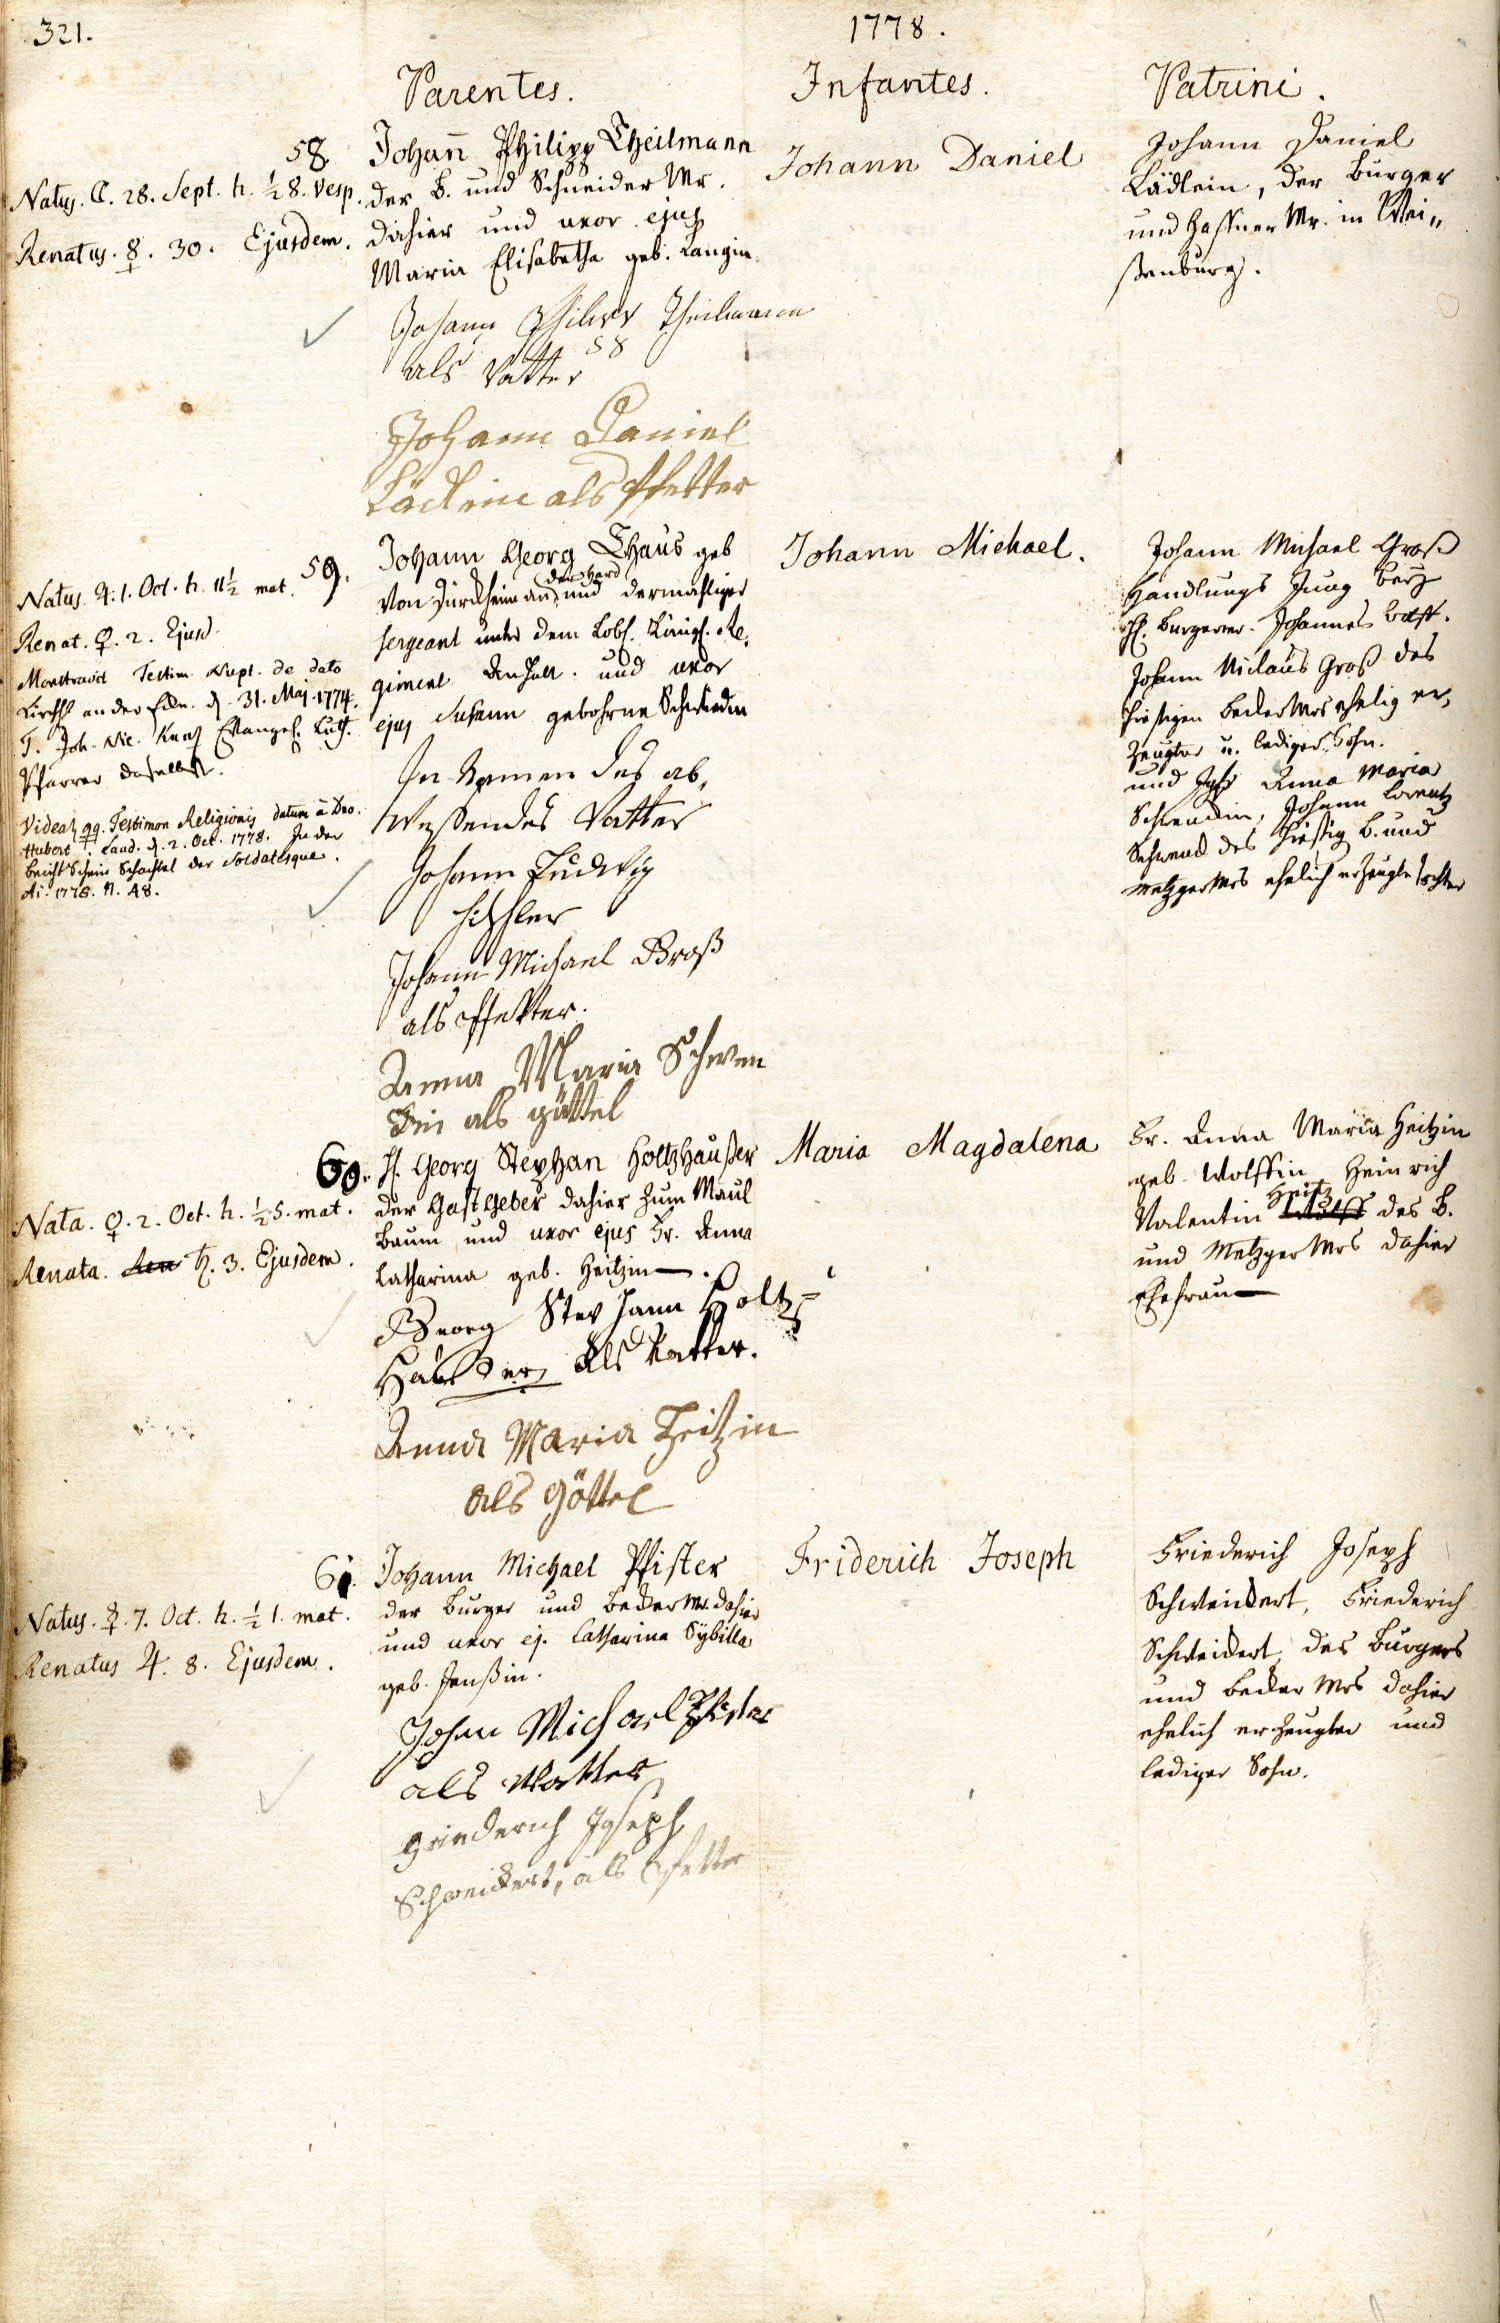 321.
1778.
Parentes.
Infantes.
Patrini.
58.
Natus. ☾. 28. Sept. h. ½8. Vesp.
Renatus. ☿. 30. Ejusdem.
Johann Philipp Theilmann
der B. und Schneider Mr.
dahier und uxor ejus
Maria Elisabetha geb. Langin.
Johann Philipp Theilmann
58
als Vatter
Johann Daniel
als Pfetter
Johann Daniel
Johann Daniel
Lädlein, der Burger
und Haffner Mr. in Wei„
ßenburg.
59.
Natus. ♃. 1. Oct. h. 11½ mat.
Renat. ♀. 2. Ejusd.
Monstravit Testim. Nupt. de dato
Kirchh. an der d. 31. Maj. 1774.
T. Joh. Nic. Evangel. Luth.
Pfarrer daselbst.
Videat. qq. Testimon Religionis datum à Dno.
Hubert. Land. d. 2. Oct. 1778. In der
beicht Schein Schachtel der Soldatesque.
Ai. 1778. N. 48.
Johann Georg Thaus geb
von Dürckheim an der Hard und dermahliger
sergeant unter dem Lobl. Königl. Re„
giment Anhalt. und uxor
ejus Susann gebohrne Schmiedin
In Namen des ab„
weßendes Vatter
Johann Ludwig
Johann Michael Groß
als Pfetter.
Anna Maria Schwen
din als göttel
Johann Michael.
Johann Michael Groß
Handlungs Jung bey
H. Burgermr. Johannes
Johann Niclaus Groß des
hiesigen Becker Mrs ehelig er„
zeugter u. lediger Sohn.
und Jgfr Anna Maria
Schwendin, Johann Lorentz
Schwend des hiesig B. und
Metzger Mrs ehelich erzeugte tochter
60.
Nata. ♀. 2. Oct. h. ½5. mat.
Renata. Ren ♄. 3. Ejusdem.
H. Georg Stephan Holtzhaußer
der Gastgeber dahier zum Maul
Baum und uxor ejus Fr. Anna
Catharina geb. Heitzin.
Georg Stephann Holtz=
Haußer als Vatter.
Anna Maria Heitzin
als Göttel
Maria Magdalena
Fr. Anna Maria Heitzin
geb. Wolffin Heinrich
Valentin Heitz des B.
und Metzger Mrs dahier
Ehefrau
61.
Natus. ☿. 7. Oct. h. ½1. mat.
Renatus ♃. 8. Ejusdem.
Johann Michael Pfister
der Burger und Becker Mr. dahier
und uxor ej. Catharina Sybilla
geb. Jenßin.
Johan Michael Pfister
als Vatter
Friederich Joseph
Schweickert, als Pfetter
Friderich Joseph
Friederich Joseph
Schweickert, Friederich
Schweickert des Burgers
und Becker Mrs dahier
ehelich erzeugter und
lediger Sohn.